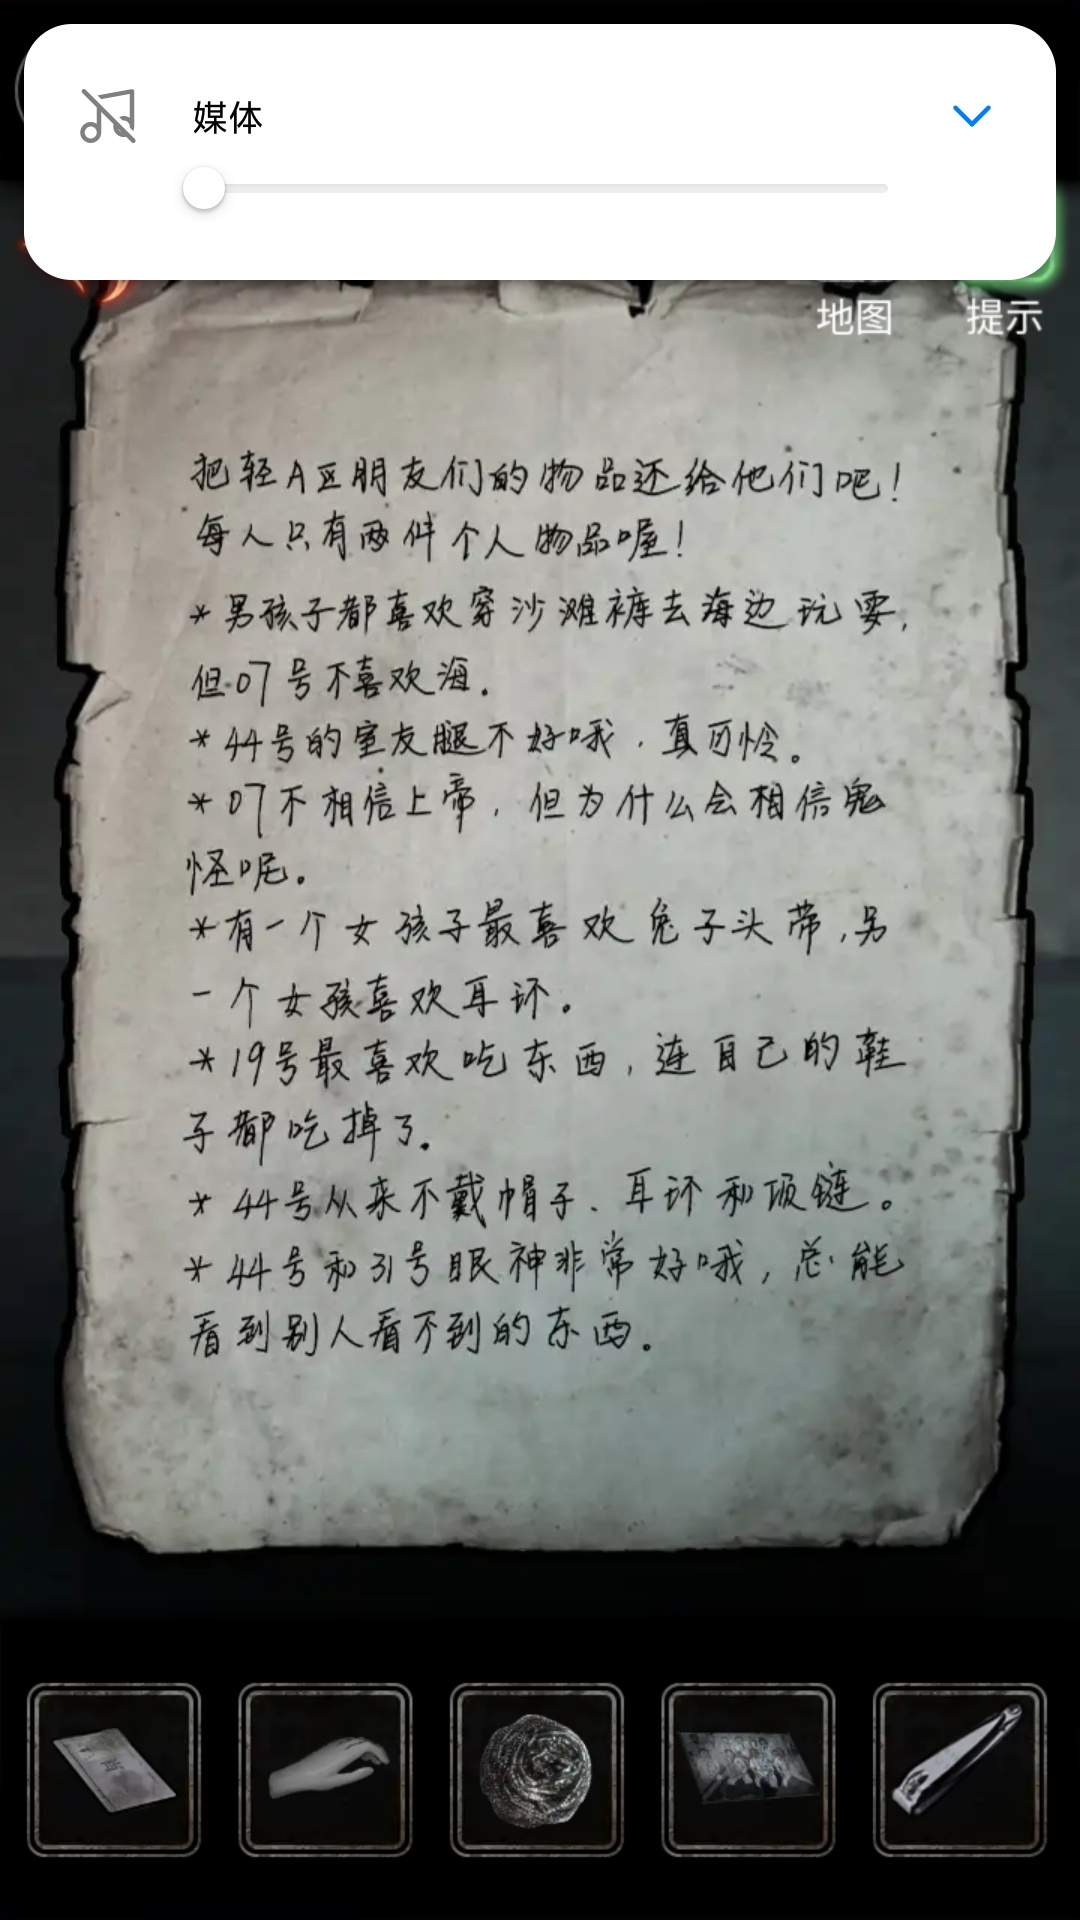 媒体
地图
提示
把轻A区朋友们的物品还给他们吧！
每人只有两件个人物品喔！
*男孩子都喜欢穿沙滩裤去海边玩耍，
但07号不喜欢海。
*44号的室友腿不好哦，真可怜。
*07不相信上帝，但为什么会相信鬼
怪呢。
*有一个女孩子最喜欢兔子头带，另
一个女孩喜欢耳环。
*19号最喜欢吃东西，连自己的鞋
子都吃掉了。
*44号从来不戴帽子、耳环和项链。
*44号和31号眼神非常好哦，总能
看到别人看不到的东西。